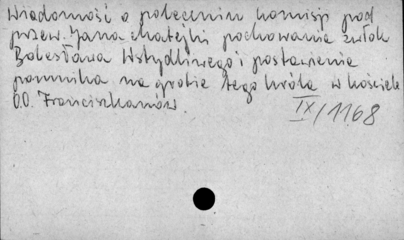 Wiadomość o poleceniu komisji pod
przew. Jana Matejki pochowania zwłok
Bolesława Wstydliwego i postawienia
pomnika na grobie tego króla w kościele
O.O. Franciszkanów.
IX/1168